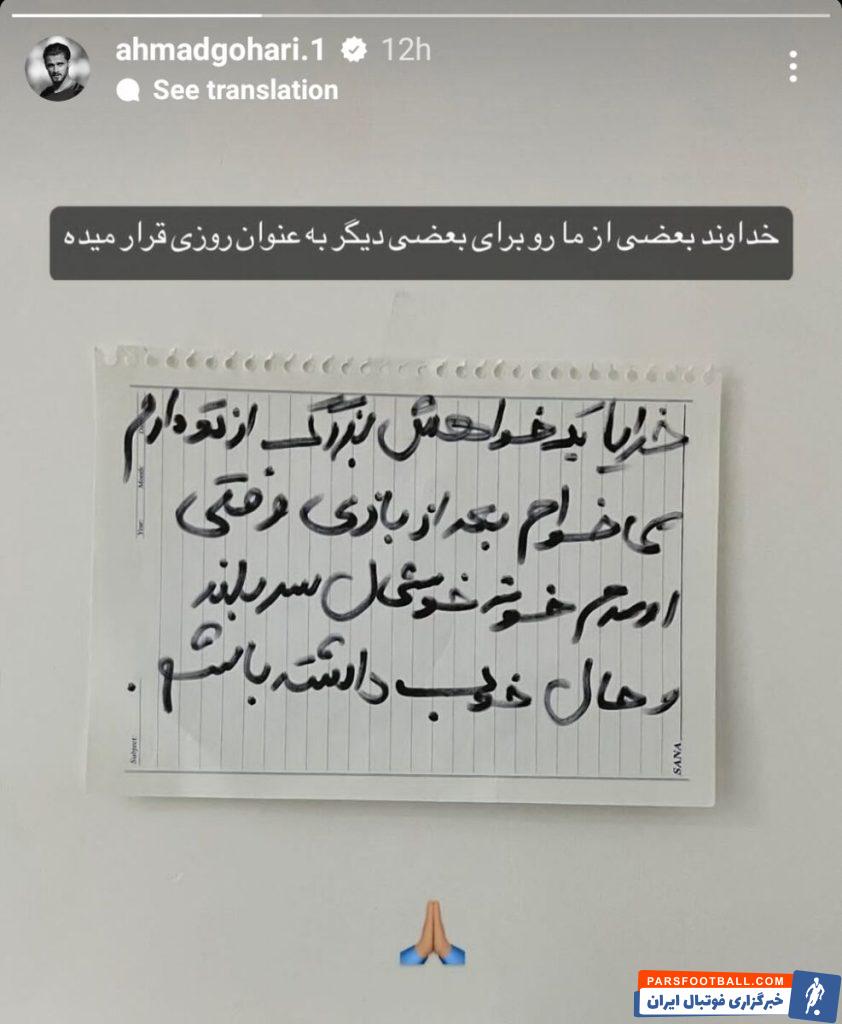 ahmadgohari.1 12h
See translation
خداوند بعضی از ما رو برای بعضی دیگر به عنوان روزی قرار میده
خدایا یک خواهش بزرگ از تو دارم
می خواهم بعد از بازی وقتی
اومدم خونه خوشحال سربلند
و حال خوب داشته باشم .
Year:
Month:
Subject:
SANA
PARSFOOTBALL.COM
خبرگزاری فوتبال ایران